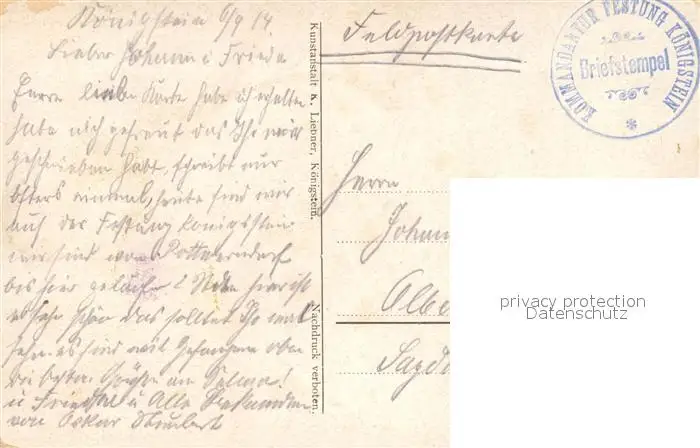 Königstein 6/9 14
Lieber Johann u Frieda
Eure liebe Karte habe ich erhalten
habe mich gefreut das Ihr mir
geschrieben habt, schreibt nur
öfters einmal, heute sind wir
auf der Festung Königsstein
wir sind von Rottwerndorf
bis hier gelaufen 2 Stden hier ist
es sehr schön das solltet Ihr mal
sehen es sind viel Gefangene oben
die besten Grüße an Selma!
u Frieda u Alle Bekannten
von Oskar
Kunstanstalt K. Liebner, Königstein.
Nachdruck verboten.
Feldpostkarte
KOMMANDANTUR FESTUNG KÖNIGSTEIN
Briefstempel
Herrn
Johan
Albe
privacy protection
Datenschutz